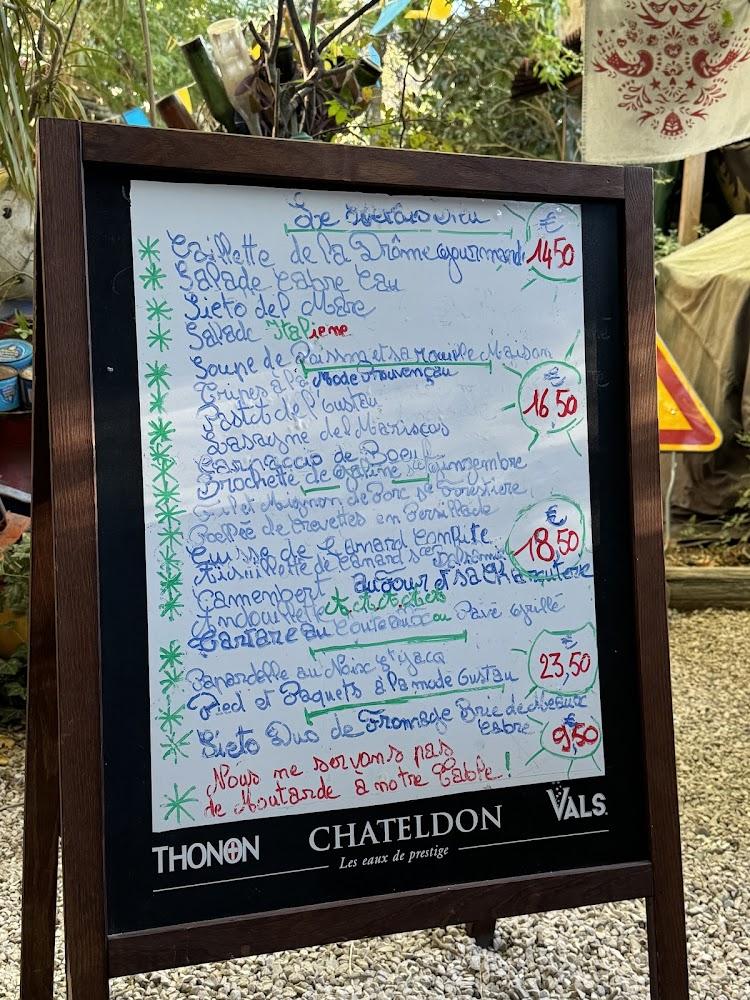 Le
€
14 50
Caillette de la Drôme Gourmande
Salade Cabre Cau
Sieto del Mare
Salade Italiene
Soupe de Poisson et sa Rouille Maison
Tripes à la Mode Provençau
€
16 50
Pastct de l'Gustau
Lasagne del Mariscos
Carpaccio de Boeuf
Brochette de Gingembre
Filet Mignon de Porc se Forestiere
Poelpeé de Crevettes en Persillade
€
18,50
Cuisse de Canard Confite
Aiguillette de Canard
Camembert autour et sa Charcuterie
Andouillette A.A.A.A.A
Tartare au Couteaux ou Pavé Grillé
€
23,50
Papardelle au Noix St Jacq
Pied et Paquets a la mode Gustau
Sieto Duo de Fromage Brie de Meaux
Cabre
€
9,50
Nous ne servons pas
de Moutarde à notre Table!
THONON
CHATELDON
VALS.
Les eaux de prestige